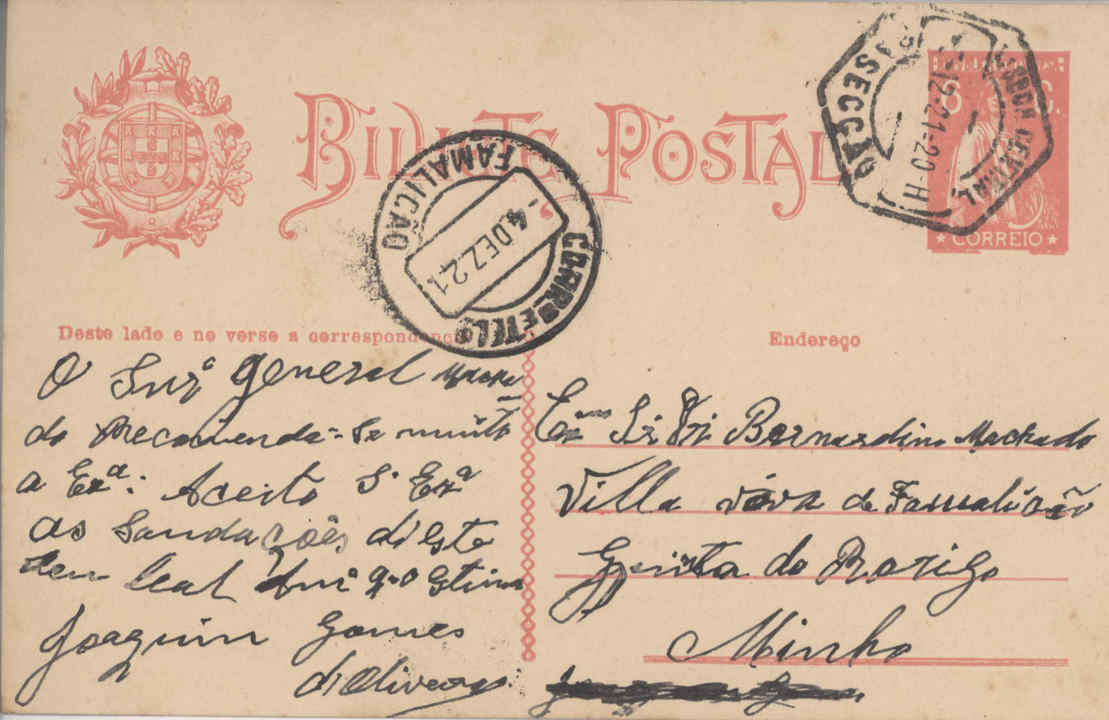 BILHETE POSTAL
CORREIO
FAMALICÃO
-4 DEZ. 21
CORR. E TEL.
4ª SECCÃO
LISBOA CENTRAL
12-21-20-H
Deste lado e no verso a correspondencia
Endereço
O Snr. General Macha
do Recomenda-se muito
a Exª: Aceito S. Exª
as Saudações diste
seu leal Amº q. o Estima
Joaquim Gomes
d'Oliveira
Exmo Sr. Dr. Bernardino Machado
Villa Nova de Famalicão
Quinta do Rorigo
Minho